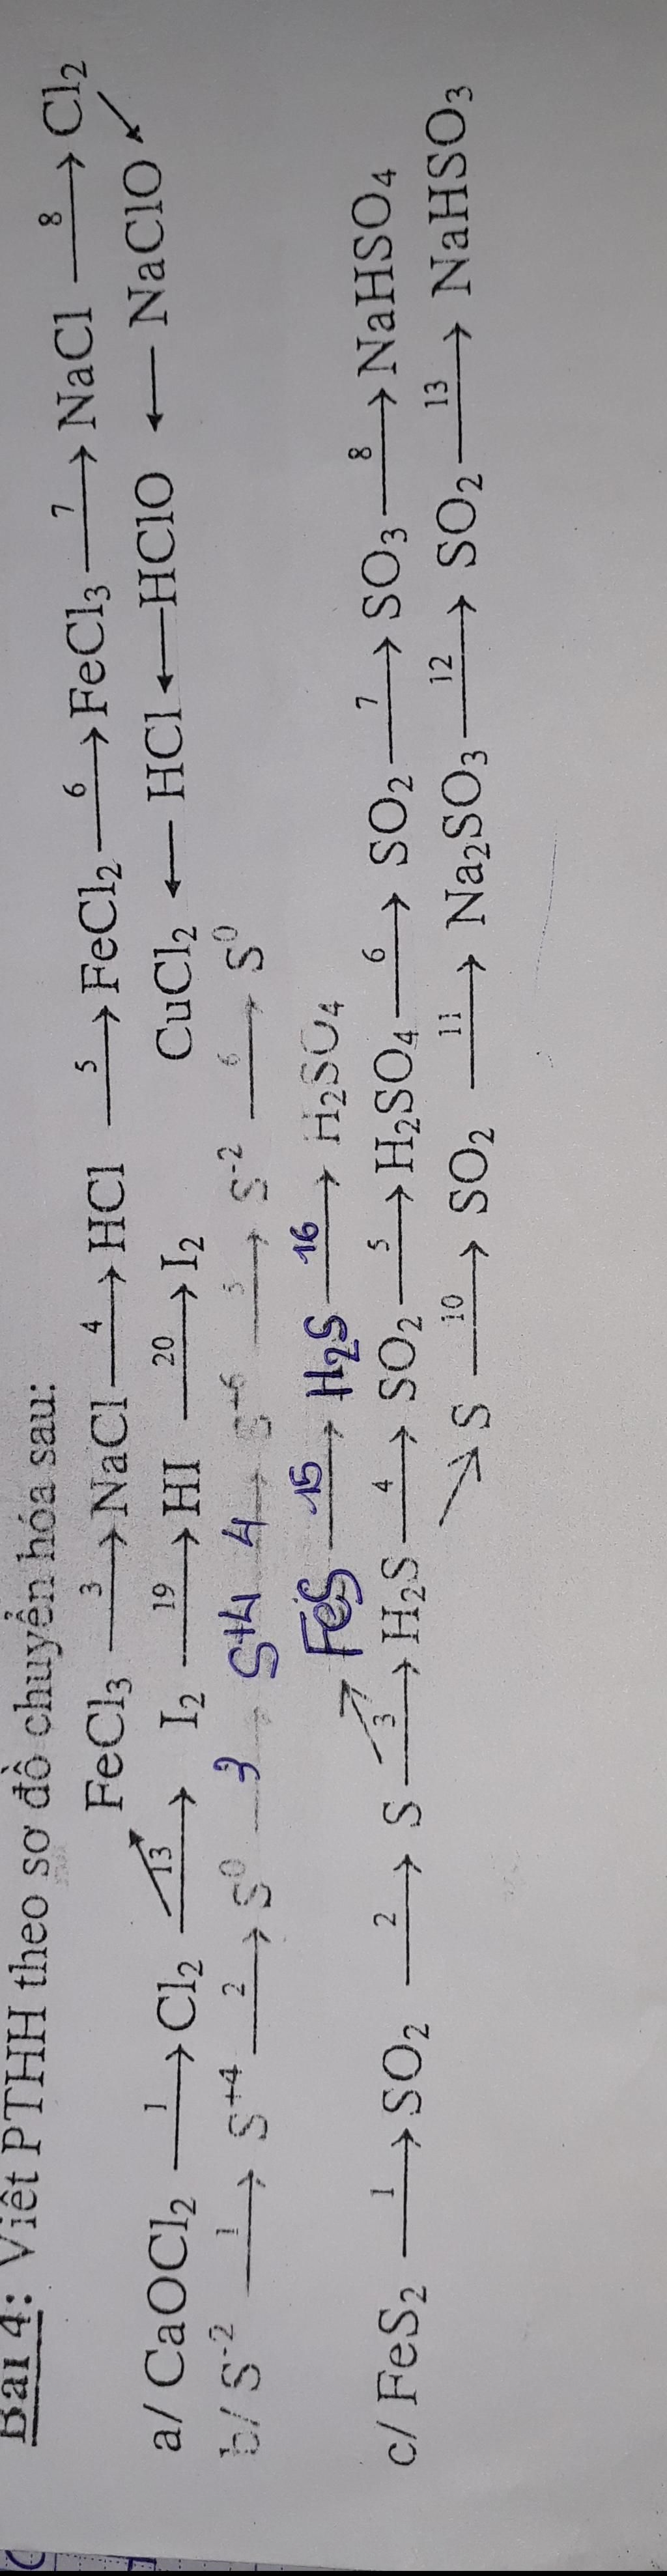 Bài 4: Viết PTHH theo sơ đồ chuyển hóa sau:
FeCl₃ —3→ NaCl —4→ HCl —5→ FeCl₂ —6→ FeCl₃ —7→ NaCl —8→ Cl₂
a/ CaOCl₂ —1→ Cl₂ —13→ I₂ —19→ HI —20→ I₂ CuCl₂ ← HCl ← HClO ← NaClO
b/ S⁻² —1→ S⁺⁴ —2→ S⁰ —3→ S⁺⁴ —4→ S⁺⁶ —5→ S⁻² —6→ S⁰
FeS —15→ H₂S —16→ H₂SO₄
c/ FeS₂ —1→ SO₂ —2→ S —3→ H₂S —4→ SO₂ —5→ H₂SO₄ —6→ SO₂ —7→ SO₃ —8→ NaHSO₄
S —10→ SO₂ —11→ Na₂SO₃ —12→ SO₂ —13→ NaHSO₃